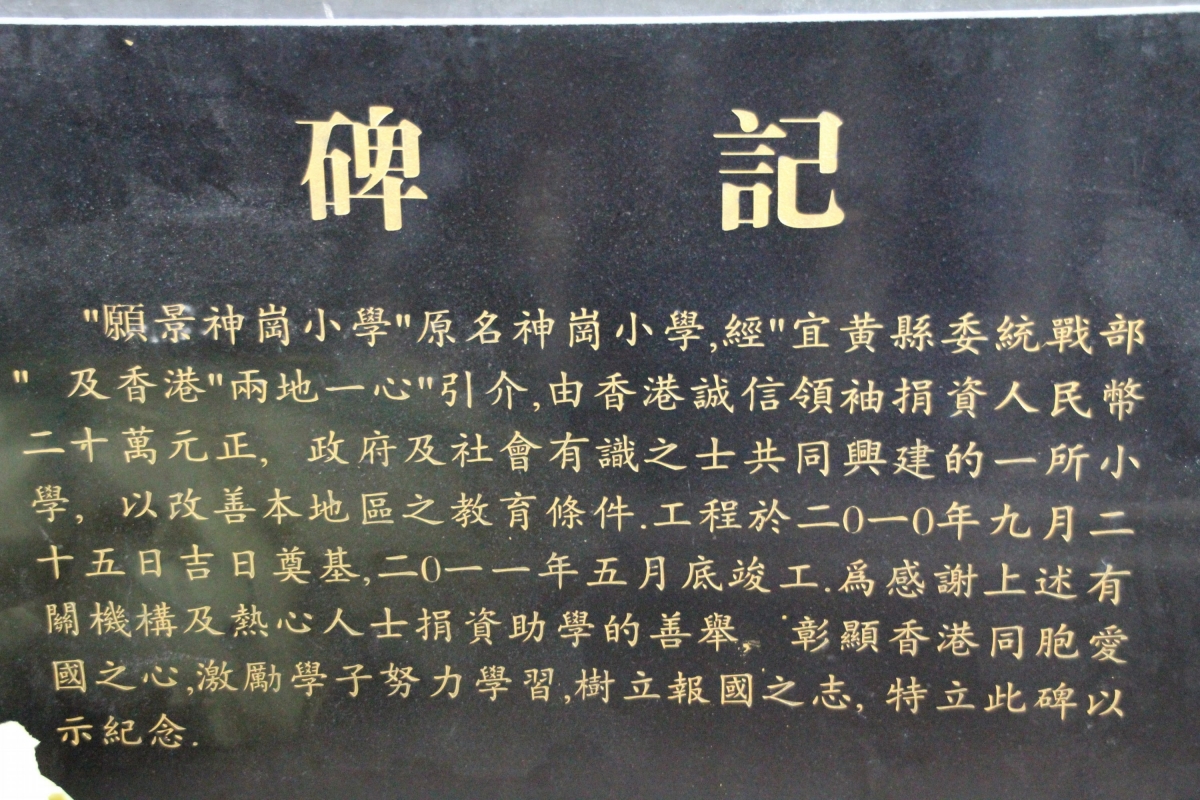 碑 記
"願景神崗小學"原名神崗小學,經"宜黄縣委統戰部
" 及香港"兩地一心"引介,由香港誠信領袖捐資人民幣
二十萬元正, 政府及社會有識之士共同興建的一所小
學, 以改善本地區之教育條件.工程於二0一0年九月二
十五日吉日奠基,二0一一年五月底竣工.爲感謝上述有
關機構及熱心人士捐資助學的善舉, 彰顯香港同胞愛
國之心,激勵學子努力學習,樹立報國之志, 特立此碑以
示紀念.